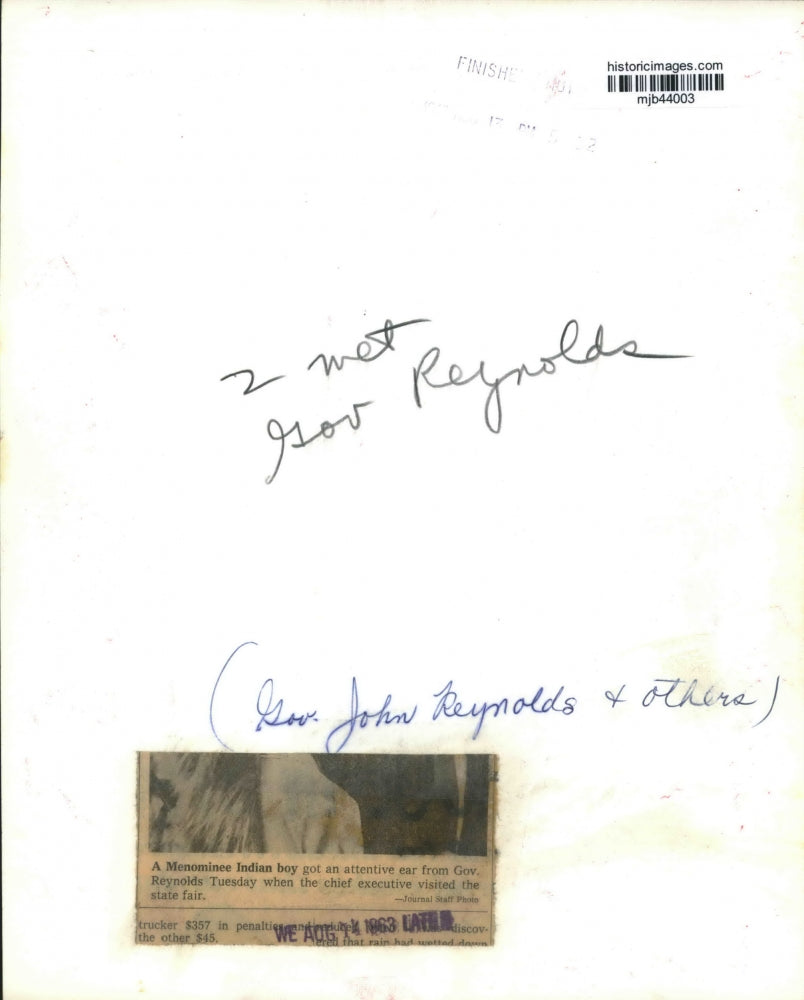 FINISHE
historicimages.com
mjb44003
2 met
Gov Reynolds
(Gov. John Reynolds & others)
A Menominee Indian boy got an attentive ear from Gov.
Reynolds Tuesday when the chief executive visited the
state fair.
—Journal Staff Photo
trucker $357 in penalties and discov-
the other $45.
ered that rain had wetted down
WE AUG 14 1963 LATE